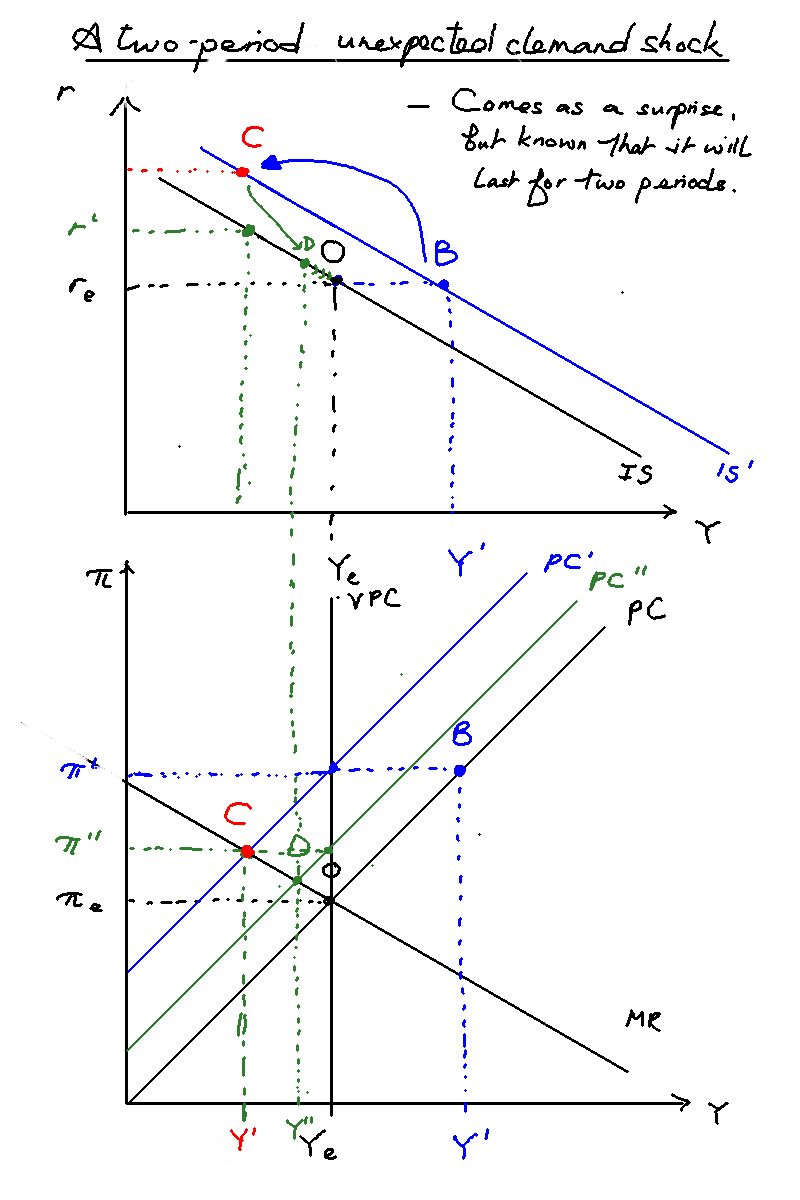 A two-period unexpected demand shock
— Comes as a surprise,
but known that it will
last for two periods.
r
C
r'
D
O
B
re
IS
IS'
Y
Ye
Y'
π
VPC
PC'
PC"
PC
B
π'
C
π"
D
O
πe
MR
Y
Y'
Y"
Ye
Y'